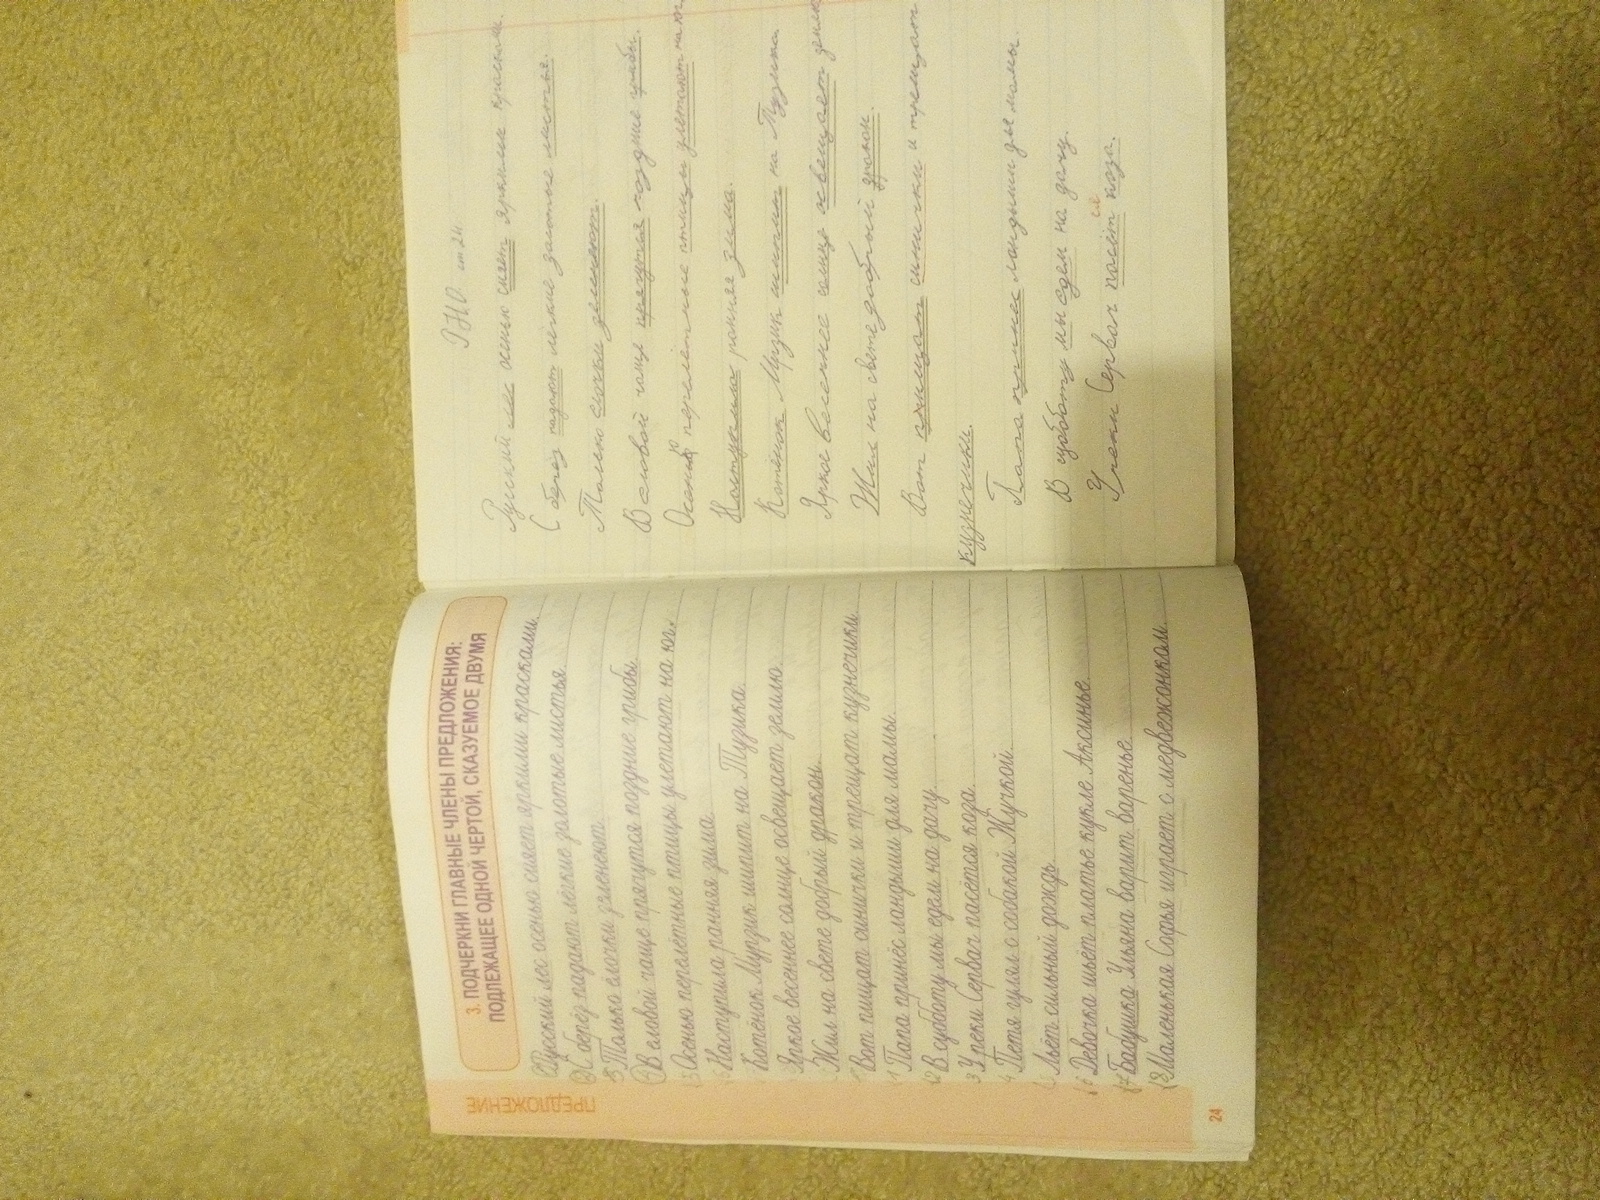 3. ПОДЧЕРКНИ ГЛАВНЫЕ ЧЛЕНЫ ПРЕДЛОЖЕНИЯ:
ПОДЛЕЖАЩЕЕ ОДНОЙ ЧЕРТОЙ, СКАЗУЕМОЕ ДВУМЯ
Русский лес осенью сияет яркими красками.
С берёз падают лёгкие золотые листья.
Только ёлочки зеленеют.
В еловой чаще прячутся поздние грибы.
Осенью перелётные птицы улетают на юг.
Наступила ранняя зима.
Котёнок Мурзик шипит на Тузика.
Яркое весеннее солнце освещает землю.
Жил на свете добрый дракон.
Вот пищат синички и трещат кузнечики.
Папа принёс ландыши для мамы.
В субботу мы едем на дачу.
У реки Сервач пасётся коза.
Петя гулял с собакой Жучкой.
Льёт сильный дождь.
Девочка шьёт платье кукле Аксинье.
Бабушка Ульяна варит варенье.
Маленькая Софья играет с медвежонком.
ПРЕДЛОЖЕНИЕ
24
ст 24.
Русский лес осенью сияет яркими красками.
С берёз падают лёгкие золотые листья.
Только ёлочки зеленеют.
В еловой чаще прячутся поздние грибы.
перелётные птицы улетают на
Наступила ранняя зима.
Котёнок Мурзик шипит на Тузика
Яркое весеннее освещает
Жил на свете добрый дракон.
Вот пищат синички и трещат
кузнечики.
Папа принес ландыши для мамы.
В субботу мы едем на дачу.
У реки Сервач пасёт ся коза.